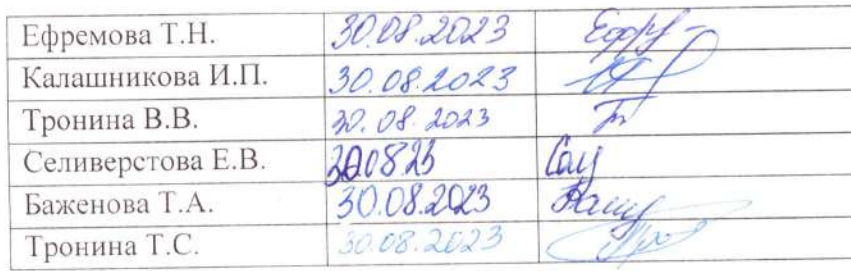 Ефремова Т.Н. 30.08.2023
Калашникова И.П. 30.08.2023
Тронина В.В. 30.08.2023
Селиверстова Е.В. 30.08 23
Баженова Т.А. 30.08.2023
Тронина Т.С. 30.08.2023